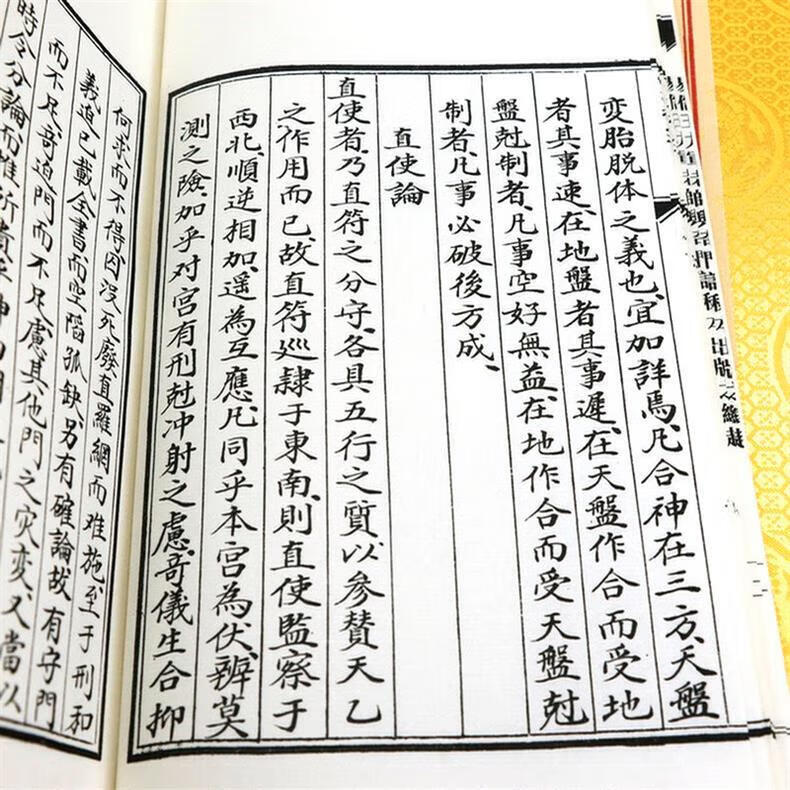 变胎脱体之義也、宜加詳焉、凡合神在三方、天盤
者其事速、在地盤者其事遲、在天盤作合而受地
盤尅制者、凡事空好無益、在地作合而受天盤尅
制者、凡事必破後方成、
直使論
直使者、乃直符之分守、各具五行之質、以参賛天乙
之作用而已、故直符巡隷于東南、則直使監察于
西北、順逆相加、遥為互應、凡同乎本宮為伏、辨莫
測之險、加乎对宮有刑尅冲射之慮、奇儀生合抑
何求而不得、囚没死廢直、羅網而难施、至于刑和
義迫已載全書、而空陷孤缺、另有確論、故有守門
而不凡、奇迫門而不足慮、其他門之灾变、又當以
時令分論、而惟所貴乎神